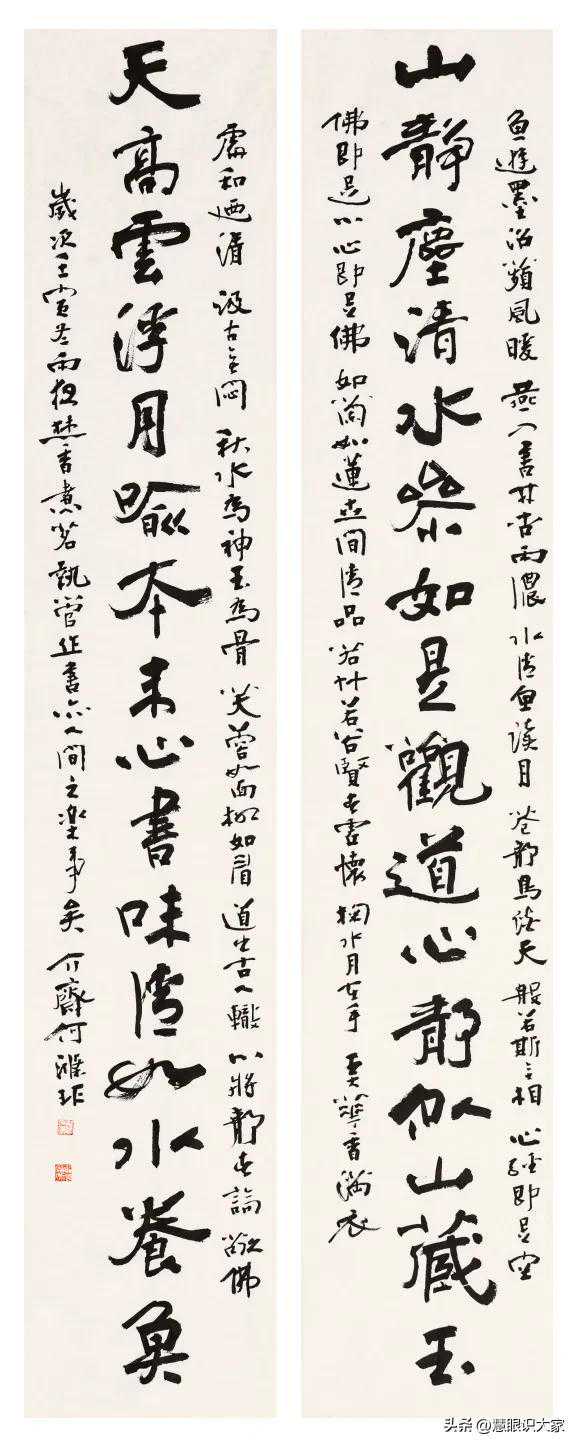 魚遊墨沼蘋風暖 燕入書林杏雨濃 水清魚讀月 花静鳥談天 般若斯三相 心經即是空
山静塵清水參如是觀道心静似山藏玉
佛即是心心即是佛 如蘭如蓮世間清品 若竹若谷賢者虚懷 掬水月在手 弄華香滿衣
處和廼清 汲古無悶 秋水為神玉為骨 芙蓉如面柳如眉 道出古人轍 心將静者論 敬佛
天高雲浮月喻本来心書味清如水養魚
歲次壬寅冬雨夜焚香煮茗執管作書亦人間之樂事矣 介齋何滌非
头条 @慧眼识大家